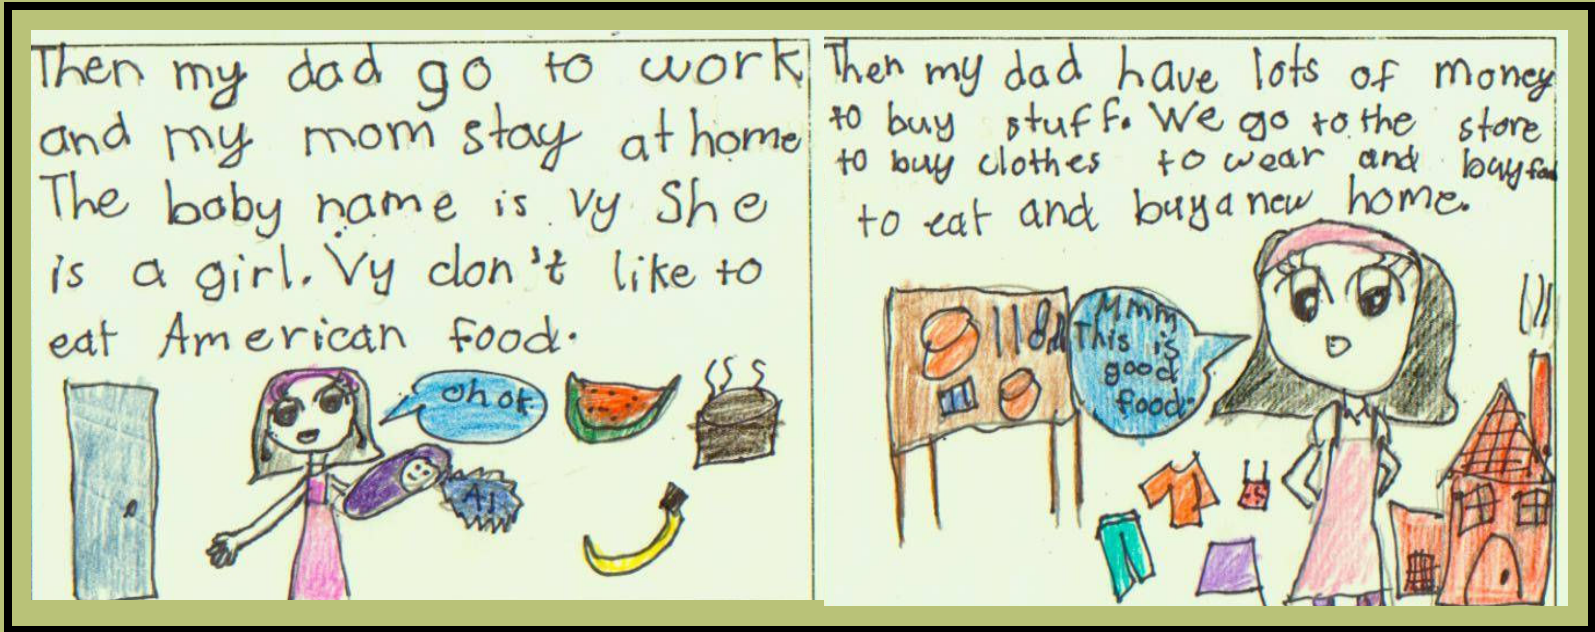 Then my dad go to work
and my mom stay at home
The baby name is Vy She
is a girl. Vy don't like to
eat American food.
Oh ok.
A!
Then my dad have lots of money
to buy stuff. We go to the store
to buy clothes to wear and buy food
to eat and buy a new home.
Mmm
This is
good
food.